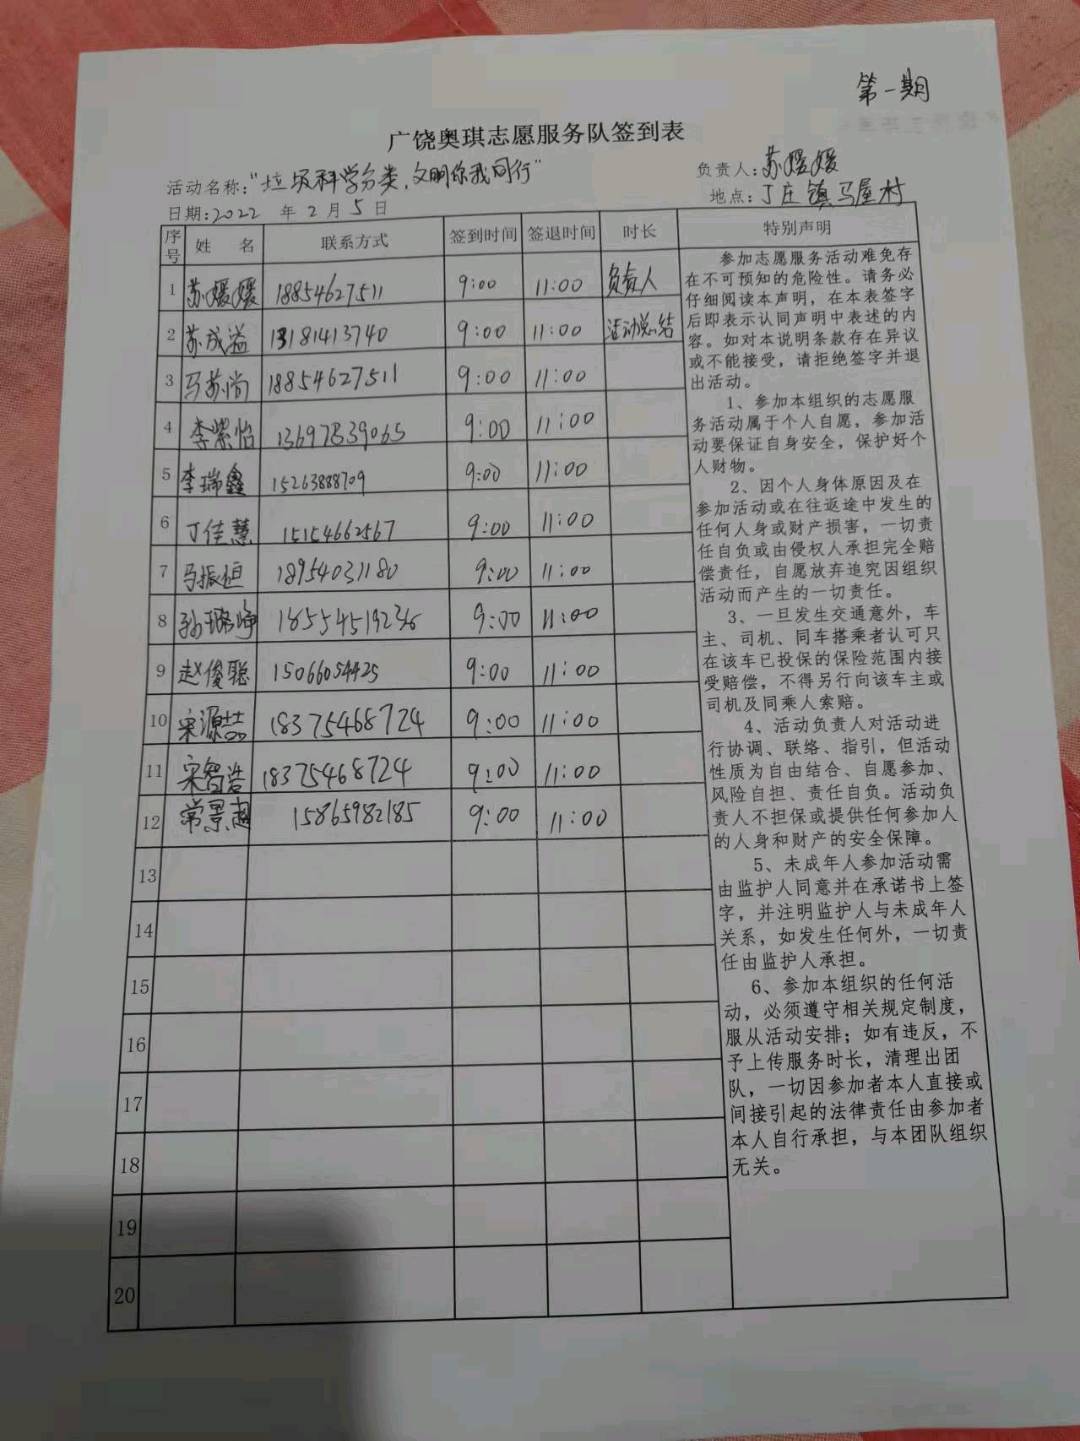 第一期
广饶奥琪志愿服务队签到表
活动名称:"垃圾科学分类,文明你我同行"
负责人:苏媛媛
日期:2022年2月5日
地点:丁庄镇马屋村
序号 姓名 联系方式 签到时间 签退时间 时长 特别声明
1 苏媛媛 18854627511 9:00 11:00 负责人
2 苏成溢 13181413740 9:00 11:00 活动总结
3 马苏尚 18854627511 9:00 11:00
4 李紫怡 13697839065 9:00 11:00
5 李瑞鑫 15263888709 9:00 11:00
6 丁佳慧 15154662567 9:00 11:00
7 马振恒 18954031180 9:00 11:00
8 孙璐峥 18554519236 9:00 11:00
9 赵俊聪 15066054425 9:00 11:00
10 宋源喆 18375468724 9:00 11:00
11 宋智浩 18375468724 9:00 11:00
12 常景超 15865982185 9:00 11:00
13
14
15
16
17
18
19
20
参加志愿服务活动难免存
在不可预知的危险性。请务必
仔细阅读本声明，在本表签字
后即表示认同声明中表述的内
容。如对本说明条款存在异议
或不能接受，请拒绝签字并退
出活动。
1、参加本组织的志愿服
务活动属于个人自愿，参加活
动要保证自身安全，保护好个
人财物。
2、因个人身体原因及在
参加活动或在往返途中发生的
任何人身或财产损害，一切责
任自负或由侵权人承担完全赔
偿责任，自愿放弃追究因组织
活动而产生的一切责任。
3、一旦发生交通意外，车
主、司机、同车搭乘者认可只
在该车已投保的保险范围内接
受赔偿，不得另行向该车主或
司机及同乘人索赔。
4、活动负责人对活动进
行协调、联络、指引，但活动
性质为自由结合、自愿参加、
风险自担、责任自负。活动负
责人不担保或提供任何参加人
的人身和财产的安全保障。
5、未成年人参加活动需
由监护人同意并在承诺书上签
字，并注明监护人与未成年人
关系，如发生任何外，一切责
任由监护人承担。
6、参加本组织的任何活
动，必须遵守相关规定制度，
服从活动安排；如有违反，不
予上传服务时长，清理出团
队，一切因参加者本人直接或
间接引起的法律责任由参加者
本人自行承担，与本团队组织
无关。